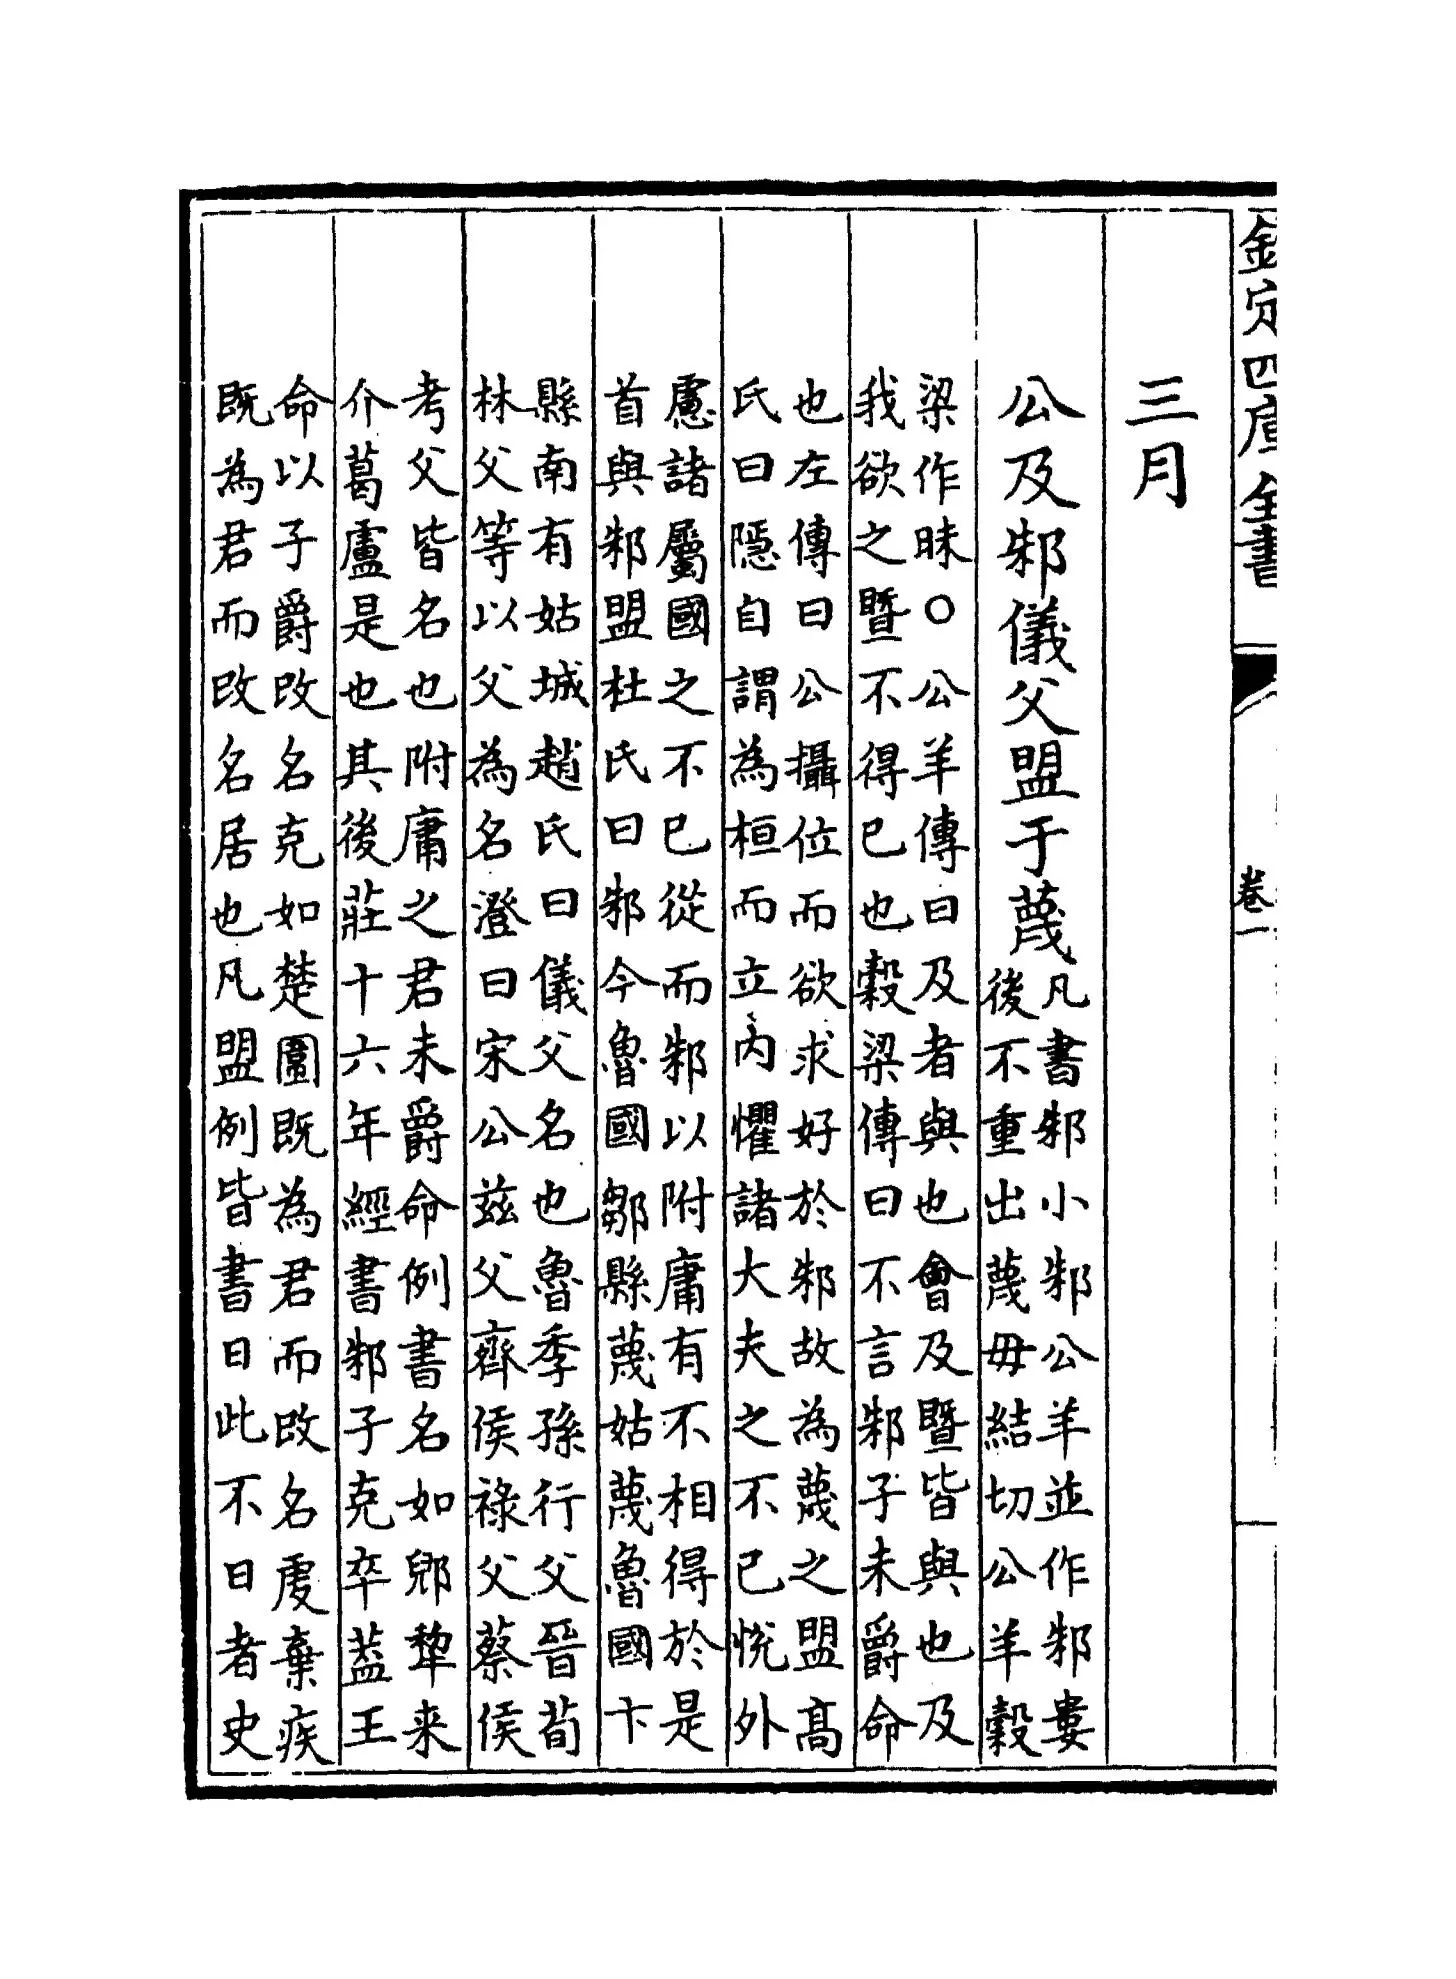 欽定四庫全書
卷一
三月
公及邾儀父盟于蔑
凡書邾小邾公羊並作邾婁
後不重出蔑毋結切公羊穀
梁作昧○公羊傳曰及者與也會及暨皆與也及
我欲之暨不得已也穀梁傳曰不言邾子未爵命
也左傳曰公攝位而欲求好於邾故為蔑之盟髙
氏曰隱自謂為桓而立内懼諸大夫之不已悅外
慮諸屬國之不已從而邾以附庸有不相得於是
首與邾盟杜氏曰邾今魯國鄒縣蔑姑蔑魯國卞
縣南有姑城趙氏曰儀父名也魯季孫行父晉荀
林父等以父為名澄曰宋公兹父齊侯祿父蔡侯
考父皆名也附庸之君未爵命例書名如郳犂来
介葛盧是也其後莊十六年經書邾子克卒葢王
命以子爵改名克如楚圍既為君而改名虔棄疾
既為君而改名居也凡盟例皆書日此不日者史